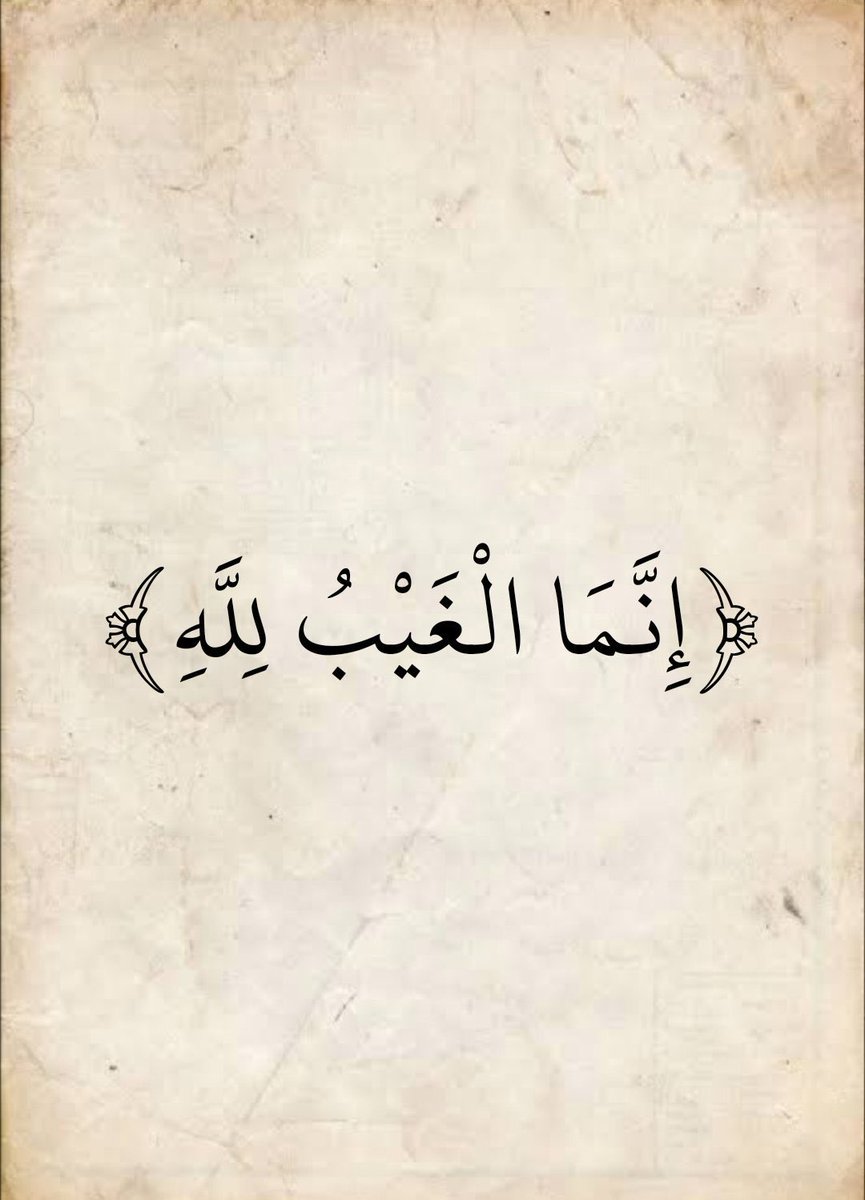 ﴿إِنَّمَا الْغَيْبُ لِلَّهِ﴾